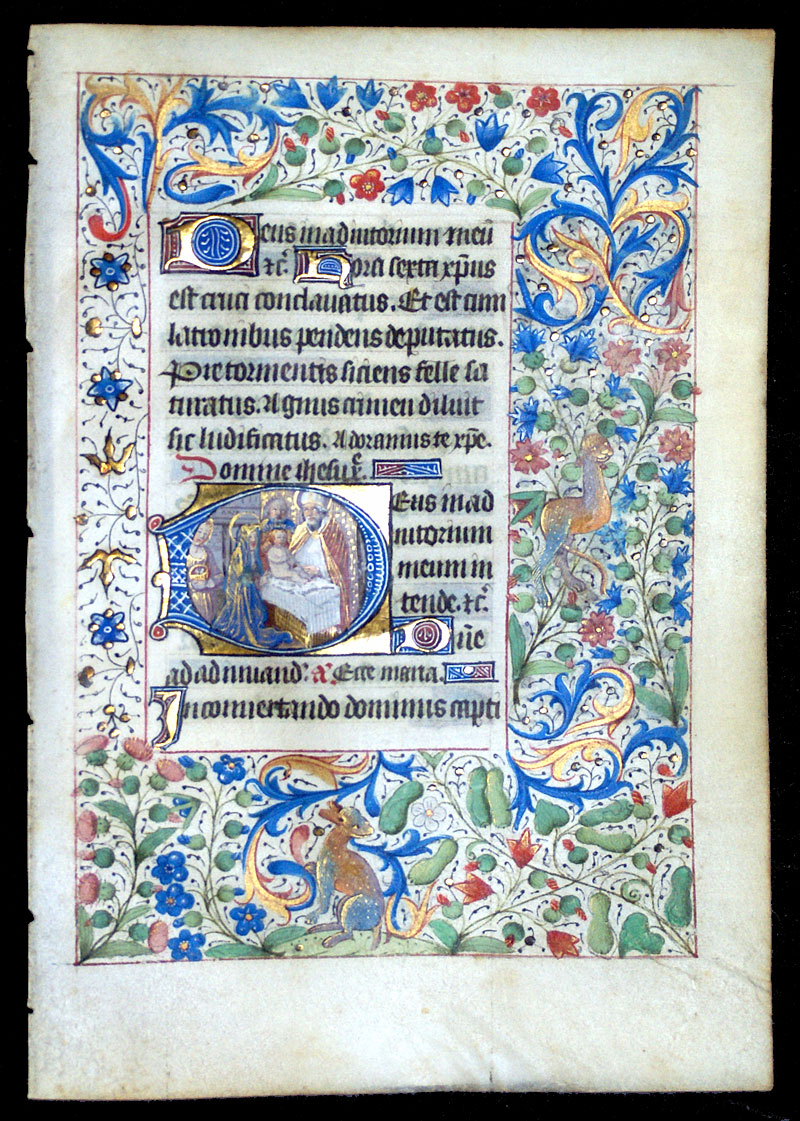 Deus in adiutorium meū
⁊cꝰ. Hora sexta xp̄us
est cruci conclavatus. Et est cum
latronibus pendens deputatus.
Pre tormentis siciens felle sa
turatus. Agnus crimen diluit
sic ludificatus. Adoramus te xp̄e.
Domine ihesu
Deus in ad
iutorium
meum in
tende. ⁊cꝰ.
Dn̄e
ad adiuuand. Ecce maria.
In conuertendo dominus capti